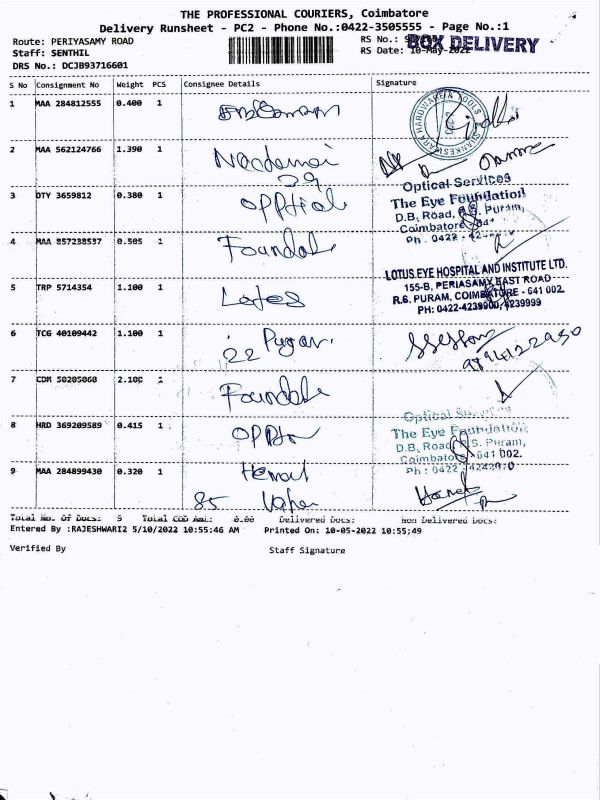 THE PROFESSIONAL COURIERS, Coimbatore
Delivery Runsheet - PC2 - Phone No.:0422-3505555 - Page No.:1
Route: PERIYASAMY ROAD
RS No.:
Staff: SENTHIL
RS Date: 10-May-2022
BOX DELIVERY
DRS No.: DCJB93716601
S No Consignment No Weight PCS Consignee Details Signature
1 MAA 284812555 0.400 1
HARDWARE TOOLS
2 MAA 562124766 1.390 1
29
Optical Services
3 DTY 3659812 0.380 1 Opptical
The Eye Foundation
D.B. Road, R.S. Puram,
Coimbatore
4 MAA 857238537 0.505 1 Foundat
Ph : 0422 -
LOTUS EYE HOSPITAL AND INSTITUTE LTD.
5 TRP 5714354 1.100 1 Lotes
155-B, PERIASAMY EAST ROAD
R.S. PURAM, COIMBATORE - 641 002.
PH: 0422-4239900, 4239999
6 TCG 40109442 1.100 1
22
7 CDM 50205060 2.100 1 Foundate
Optical Services
8 HRD 369209589 0.415 1
The Eye Foundation
D.B. Road, R.S. Puram,
Coimbatore 641 002.
9 MAA 284899430 0.320 1
Ph : 0422 - 4242070
85
Total No. Of Docs: 9 Total COD Amt: 0.00 Delivered Docs: Non Delivered Docs:
Entered By :RAJESHWARI2 5/10/2022 10:55:46 AM Printed On: 10-05-2022 10:55:49
Verified By Staff Signature